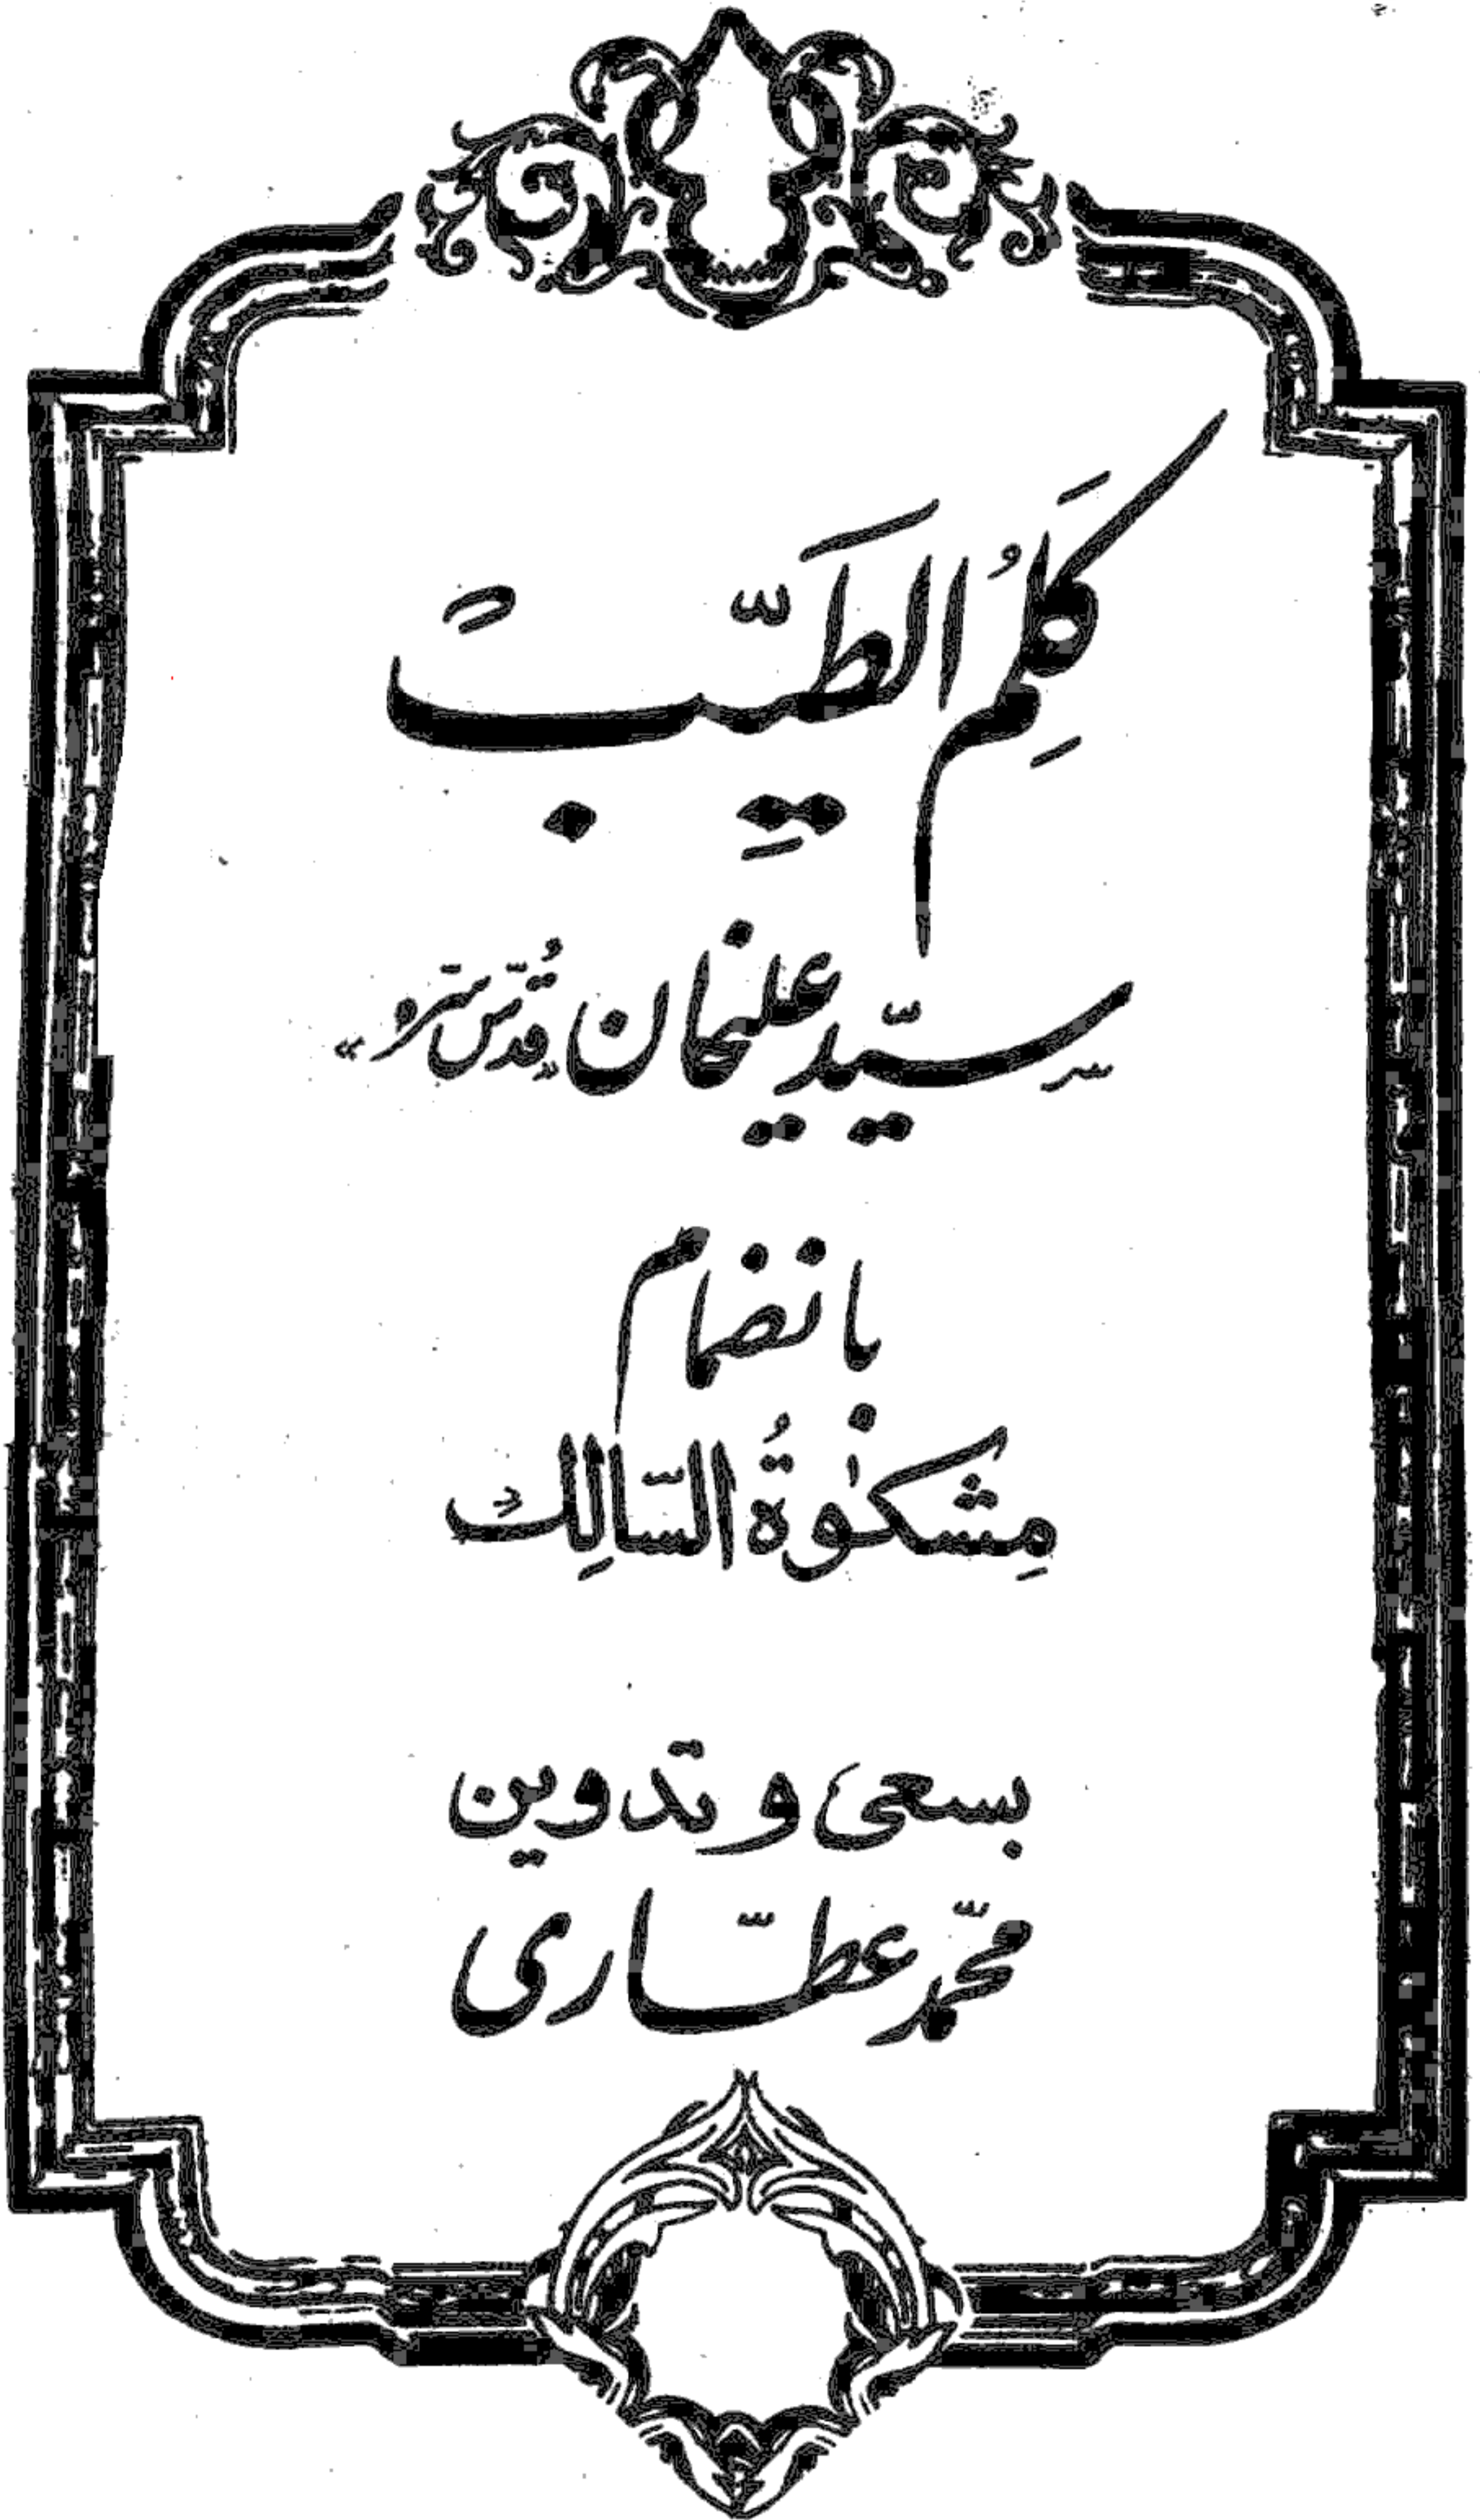 كَلِمُ الطَّيِّب
سیّد علیخان «قُدّس سرّه»
بانضمام
مِشكٰوةُ السّالِك
بسعی و تدوین
محمّد عطّاری